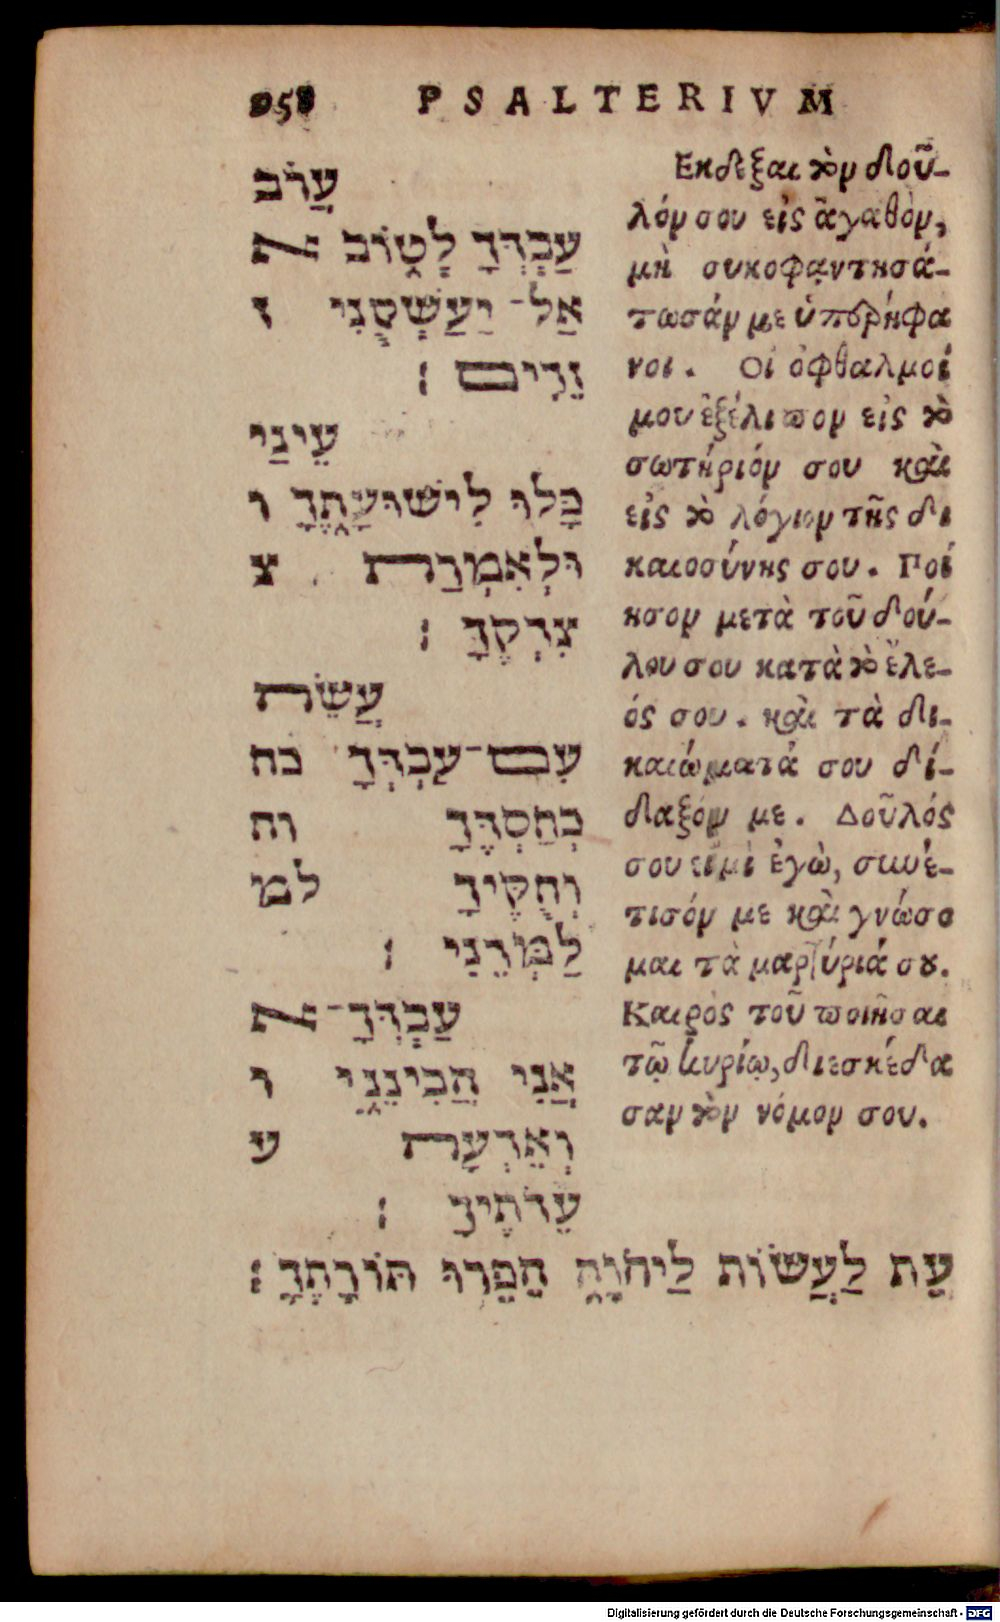 PSALTERIVM
עֲרֹב
עַבְדְּךָ לְטוֹב א
אַל־יַעַשְׁקֻנִי ז
זֵדִים׃
עֵינַי
כָּלוּ לִישׁוּעָתֶךָ ו
וּלְאִמְרַת צ
צִדְקֶךָ׃
עֲשֵׂה
עִם־עַבְדְּךָ כח
כְחַסְדֶּךָ וח
וְחֻקֶּיךָ למ
לַמְּדֵנִי׃
עַבְדְּךָ־א
אָנִי הֲבִינֵנִי ו
וְאֵדְעָה ע
עֵדֹתֶיךָ׃
עֵת לַעֲשׂוֹת לַיהוָה הֵפֵרוּ תּוֹרָתֶךָ׃
Εκδεξαι τὸν δοῦ-
λόν σου εἰς ἀγαθὸν,
μὴ συκοφαντησά-
τωσάν με ὑπερήφα
νοι. Οἱ ὀφθαλμοί
μου ἐξέλιπον εἰς τὸ
σωτήριόν σου καὶ
εἰς τὸ λόγιον τῆς δι
καιοσύνης σου. Ποί
ησον μετὰ τοῦ δού-
λου σου κατὰ τὸ ἔλε-
ός σου. καὶ τὰ δι-
καιώματά σου δί-
δαξόν με. Δοῦλός
σου εἰμὶ ἐγὼ, συνέ-
τισόν με καὶ γνώσο
μαι τὰ μαρτύριά σου.
Καιρὸς τοῦ ποιῆσαι
τῷ κυρίῳ, διεσκέδα
σαν τὸν νόμον σου.
Digitalisierung gefördert durch die Deutsche Forschungsgemeinschaft - DFG